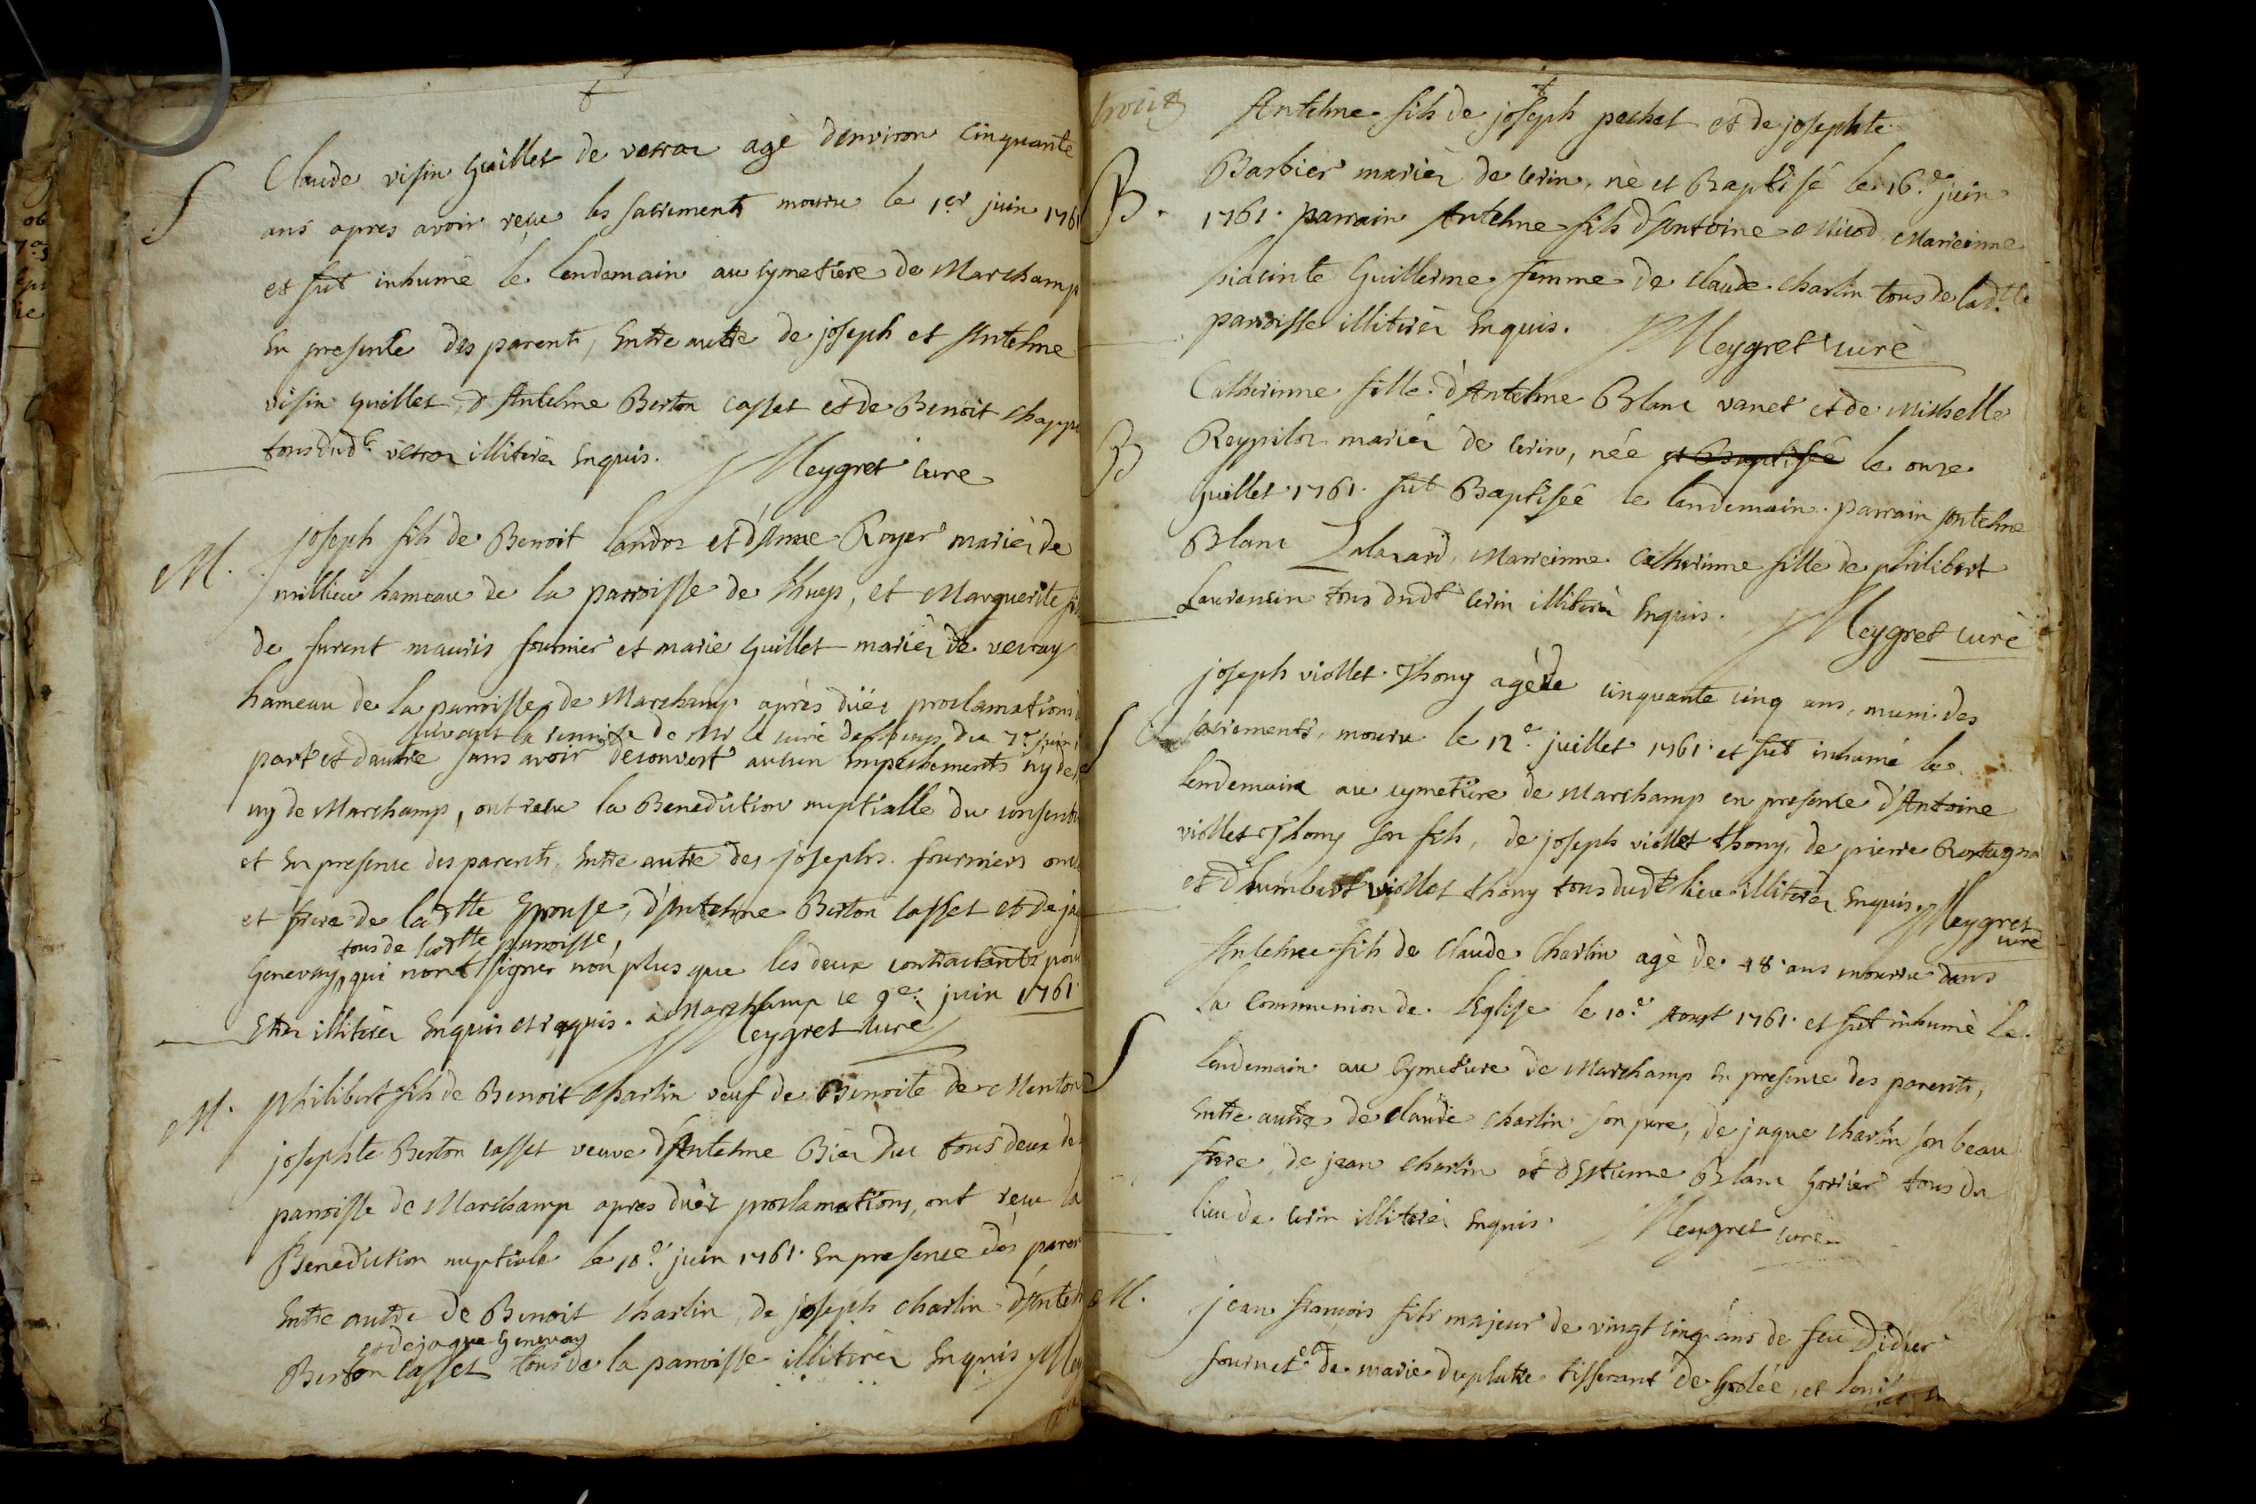 S
Claude visin Guillet de vetraz agè denviron Cinquante
ans apres avoir reçue les sacrements mouru le 1er juin 1761
et fut inhumè le lendemain au cymetiere de Marchamp
En presente des parents, Entre autre de joseph et Antelme
visin Guillet, d'Antelme Berton Casset et de Benoit
tous dudt illiterés Enquis. Meygret Curé
M.
joseph fils de Benoit Landoz et d'Anne Royer mariés de
millieu hameau de la parroisse de et Marguerite
de furent mauris fournier et marie Guillet mariés de vercray
hameau de la parroisse de Marchamp après düés proclamations
suivant la remise de Mr le curé du 7e juin
part et dautre sans avoir decouvert aucun Empechements ny de
ny de Marchamp, ont reçue la Benediction nuptialle du
et En presence des parents, Entre autre des josephs fourniers
et frère de ladtte Epouse, d'Antelme Berton Casset et de
tous de ladtte parroisse,
Genevay qui nont signer non plus que les deux contractants pour
Etre illiterés Enquis et requis. à Marchamp le 9e juin 1761
Meygret Curé
M.
philibert fils de Benoit Charlin veuf de Benoite de
josephte Berton Casset veuve d'Antelme tous deux de
parroisse de Marchamp apres duës proclamations, ont reçue la
Benediction nuptiale le 10e juin 1761 En presence des
Entre autre de Benoit Charlin, de joseph Charlin
et de jaque Genevay
Berton Casset tous de la parroisse illiterés Enquis
B.
Antelme fils de joseph pochet et de josephte
Barbier mariés de Cerin, nè et Baptisé le 16e juin
1761. parrain Antelme fils d'Antoine Micod Mareinne
hiacinte Guillerme femme de Claude Charlin tous de ladtte
parroisse illiterés Enquis. Meygret Curè
B
Catherinne fille d'Antelme Blanc vanet et de Michelle
Reypiloz mariés de Cerin, née et Baptisée le onze
Juillet 1761. fut Baptiseé le lendemain. parrain Antelme
Blanc Mareinne Catherinne fille de philibert
Laurensin tous dudt Cerin illiterés Enquis. Meygret Curè
S
joseph viollet Thony agè de cinquante cinq ans, muni des
sacrements, mouru le 12e juillet 1761 et fut inhumé le
lendemain au cymetiere de Marchamp en presence d'Antoine
viollet Thony son fils, de joseph viollet thony, de pierre
et dhumbert viollet thony tous dudt lieu illiterés Enquis. Meygret
curé
S
Antelme fils de Claude Charlin agè de 48 ans mouru dans
la Communion de l'Eglise le 10e Aoust 1761. et fut inhumè le
lendemain au Cymetiere de Marchamp En presence des parents,
Entre autre de Claude Charlin son pere, de jaque Charlin son beau
frere, de jean Charlin et d'Etienne Blanc tous du
lieu de Cerin illiterés Enquis. Meygret curè
M.
jean françois fils majeur de vingt cinq ans de feu Didier
fournet et de marie duplatre tisserant de